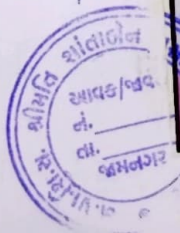 શ્રીમતિ શાંતાબેન
આવક/જાવ
નં.
તા.
જામનગર